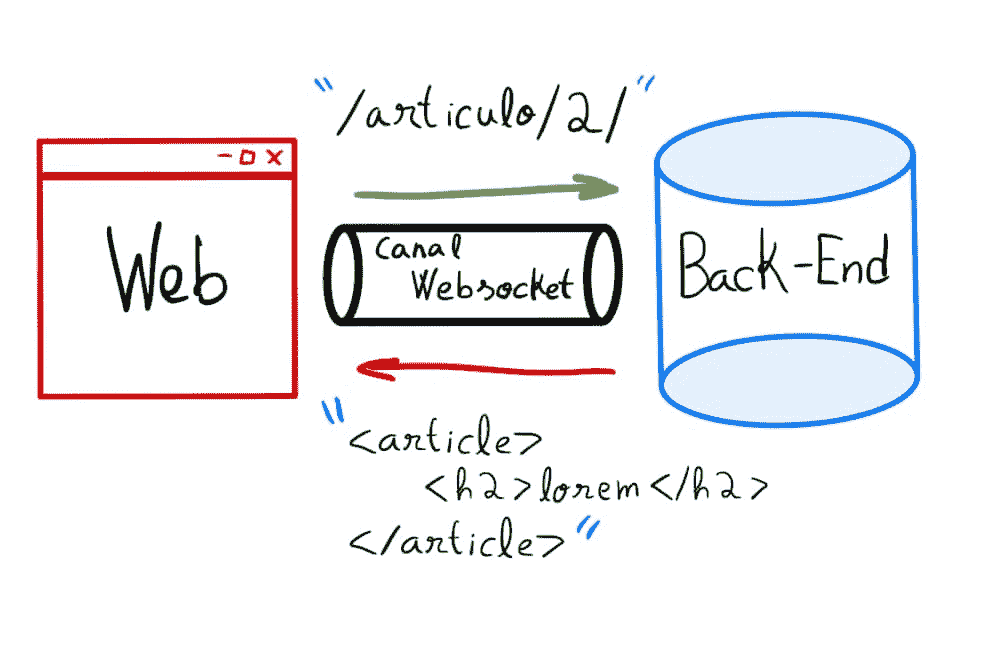 "/articulo/2/"
Web
Canal
Websocket
Back-End
"<article>
<h2>lorem</h2>
</article>"